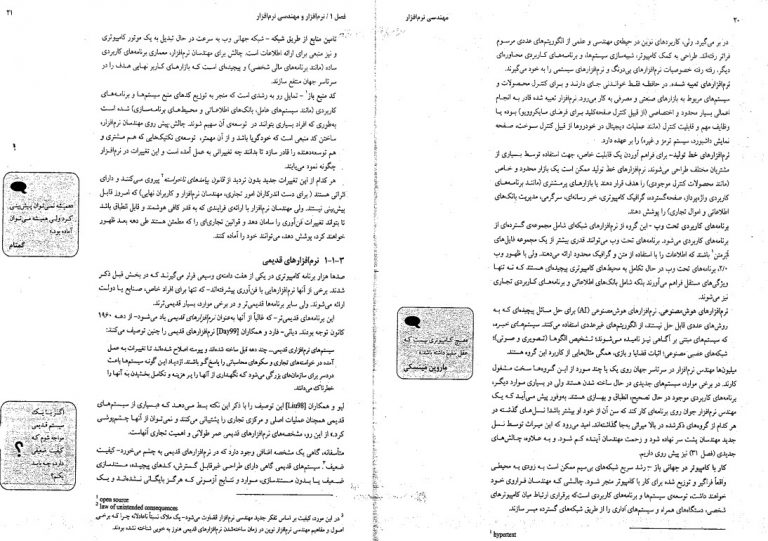 ۲۰
مهندسی نرم‌افزار
در بر می‌گیرد. ولی، کاربردهای نوین در حیطه‌ی مهندسی و علمی از الگوریتم‌های عددی مرسوم
فراتر رفته‌اند. طراحی به کمک کامپیوتر، شبیه‌سازی سیستم‌ها، و برنامه‌های کاربردی محاوره‌ای
دیگر، رفته رفته خصوصیات نرم‌افزارهای بی‌درنگ و نرم‌افزارهای سیستمی را به خود می‌گیرند.
نرم‌افزارهای تعبیه شده. در حافظه‌ فقط خواندنی جای دارند و برای کنترل محصولات و
سیستم‌های مربوط به بازارهای صنعتی و مصرفی به کار می‌رود. نرم‌افزار تعبیه شده قادر به انجام
اعمالی بسیار محدود و اختصاصی (از قبیل کنترل صفحه‌کلید برای فرهای مایکروویو) بوده یا
وظایف مهم و قابلیت کنترل (مانند عملیات دیجیتال در خودروها از قبیل کنترل سوخت، صفحه
نمایش داشبورد، سیستم ترمز و غیره) را بر عهده دارد.
نرم‌افزارهای خط تولید- برای فراهم آوردن یک قابلیت خاص، جهت استفاده توسط بسیاری از
مشتریان مختلف طراحی می‌شوند. نرم‌افزارهای خط تولید ممکن است یک بازار محدود و خاص
(مانند محصولات کنترل موجودی) را هدف قرار دهند یا بازارهای پرمشتری (مانند برنامه‌های
کاربردی واژه‌پرداز، صفحه‌گسترده، گرافیک کامپیوتری، خبر رسانه‌ای، سرگرمی، مدیریت بانک‌های
اطلاعاتی و اموال تجاری) را پوشش دهند.
برنامه‌های کاربردی تحت وب - این گروه از نرم‌افزارهای شبکه‌ای شامل مجموعه‌ی گسترده‌ای از
برنامه‌های کاربردی می‌شود. برنامه‌های تحت وب می‌توانند قدری بیشتر از یک مجموعه فایل‌های
اَبَرمتن¹ باشند که اطلاعات را با استفاده از متن و گرافیک محدود ارائه می‌دهند. ولی با ظهور وب
۲/۰، برنامه‌های تحت وب در حال تکامل به محیط‌های کامپیوتری پیچیده‌ای هستند که نه تنها
ویژگی‌های مستقل فراهم می‌آورند بلکه شامل بانک‌های اطلاعاتی و برنامه‌های کاربردی تجاری
نیز می‌شوند.
نرم‌افزارهای هوش‌مصنوعی. نرم‌افزارهای هوش‌مصنوعی (AI) برای حل مسائل پیچیده‌ای که به
روش‌های عددی قابل حل نیستند، از الگوریتم‌های غیرعددی استفاده می‌کنند. سیستم‌های خبره،
که سیستم‌های مبتنی بر آگاهی نیز نامیده می‌شوند؛ تشخیص الگوها (تصویری و صوتی)
شبکه‌های عصبی مصنوعی؛ اثبات قضایا و بازی، همگی مثال‌هایی از کاربرد این گروه هستند.
میلیون‌ها مهندس نرم‌افزار در سرتاسر جهان روی یک یا چند مورد از این گروه‌ها سخت مشغول
کارند. در برخی موارد، سیستم‌های جدیدی در حال ساخته شدن هستند ولی در بسیاری موارد دیگر،
برنامه‌های کاربردی موجود در حال تصحیح، انطباق و بهسازی هستند. به‌وفور پیش می‌آید که یک
مهندس نرم‌افزار جوان روی برنامه‌ای کار کند که سن آن از خود او بیشتر باشد! نسل‌های گذشته در
هر کدام از گروه‌های ذکرشده در بالا میراثی به‌جا گذاشته‌اند. امید می‌رود که این میراث توسط نسل
جدید مهندسان پشت سر نهاده شود و زحمت مهندسان آینده کم شود. و به علاوه، چالش‌های
جدیدی (فصل ۳۱) نیز پیش روی داریم.
کار با کامپیوتر در جهانی باز - رشد سریع شبکه‌های بی‌سیم ممکن است به زودی به محیطی
واقعاً فراگیر و توزیع شده برای کار با کامپیوتر منجر شود. چالشی که مهندسان فراروی خود
خواهند داشت، توسعه‌ی سیستم‌ها و برنامه‌های کاربردی است که برقراری ارتباط میان کامپیوترهای
شخصی، دستگاه‌های همراه و سیستم‌های اداری را از طریق شبکه‌های گسترده میسر سازند.
¹ hypertext
هیچ کامپیوتری نیست که
عقل سلیم داشته باشد.
ماروین مینسکی
فصل ۱ / نرم‌افزار و مهندسی نرم‌افزار
۲۱
تامین منابع از طریق شبکه - شبکه جهانی وب به سرعت در حال تبدیل به یک موتور کامپیوتری
و نیز منبعی برای ارائه اطلاعات است. چالش برای مهندسان نرم‌افزار، معماری برنامه‌های کاربردی
ساده (مانند برنامه‌های مالی شخصی) و پیچیده‌ای است که بازارهای کاربر نهایی هدف را در
سرتاسر جهان منتفع سازند.
کد منبع باز¹ - تمایل رو به رشدی است که منجر به توزیع کدهای منبع سیستم‌ها و برنامه‌های
کاربردی (مانند سیستم‌های عامل، بانک‌های اطلاعاتی و محیط‌های برنامه‌سازی) شده است
به‌طوری که افراد بسیاری بتوانند در توسعه‌ی آن سهیم شوند. چالش پیش روی مهندسان نرم‌افزار،
ساختن کد منبعی است که خودگویا باشد و از آن مهمتر، توسعه‌ی تکنیک‌هایی که هم مشتری و
هم توسعه‌دهنده را قادر سازد تا بدانند چه تغییراتی به عمل آمده است و این تغییرات در نرم‌افزار
چگونه نمود می‌یابند.
هر کدام از این تغییرات جدید بدون تردید از قانون پیامدهای ناخواسته² پیروی می‌کنند و دارای
اثراتی هستند (برای دست اندرکاران امور تجاری، مهندسان نرم‌افزار و کاربران نهایی) که امروز قابل
پیش‌بینی نیستند. ولی مهندسان نرم‌افزار با ارائه‌ی فرایندی که به قدر کافی هوشمند و قابل انطباق باشد
تا بتواند تغییرات فن‌آوری را سامان دهد و قوانین تجاری‌ای را که مطمئن هستند طی دهه بعد ظهور
خواهند کرد، پوشش دهد، می‌توانند خود را آماده کنند.
همیشه نمی‌توان پیش‌بینی
کرد ولی همیشه می‌توان
آماده بود.
گمنام
۱-۱-۳ نرم‌افزارهای قدیمی
صدها هزار برنامه کامپیوتری در یکی از هفت دامنه‌ی وسیعی قرار می‌گیرند که در بخش قبل ذکر
شدند. برخی از آنها نرم‌افزارهایی با فن‌آوری پیشرفته‌اند- که تنها برای افراد خاص، صنایع یا دولت
ارائه می‌شوند. ولی سایر برنامه‌ها قدیمی‌تر و در برخی موارد، بسیار قدیمی‌ترند.
این برنامه‌های قدیمی‌تر- که غالباً از آنها به‌عنوان نرم‌افزارهای قدیمی یاد می‌شود- از دهه ۱۹۶۰
کانون توجه بودند. دیانی- فارد و همکاران [Day99] نرم‌افزارهای قدیمی را چنین توصیف می‌کنند:
سیستم‌های نرم‌افزاری قدیمی... چند دهه قبل ساخته شده‌اند و پیوسته اصلاح شده‌اند تا تغییرات به عمل
آمده در خواسته‌های تجاری و سکوهای محاسباتی را پاسخ‌گو باشند. ازدیاد این گونه سیستم‌ها باعث
دردسر برای سازمان‌های بزرگی می‌شود که نگهداری از آنها را پر هزینه و تکامل بخشیدن به آنها را
خطرناک می‌دانند.
لیو و همکاران [Liu98] این توصیف را با ذکر این نکته بسط می‌دهند که «بسیاری از سیستم‌های
قدیمی همچنان عملیات اصلی و مرکزی تجاری را پشتیبانی می‌کنند و نمی‌توان از آنها چشم‌پوشی
کرد.» از این رو، مشخصه‌های نرم‌افزارهای قدیمی عمر طولانی و اهمیت تجاری آنهاست.
متأسفانه، گاهی یک مشخصه اضافی وجود دارد که در نرم‌افزارهای قدیمی به چشم می‌خورد- کیفیت
ضعیف³ سیستم‌های قدیمی گاهی دارای طراحی غیرقابل گسترش، کدهای پیچیده، مستندسازی
ضعیف یا بدون مستندسازی، موارد و نتایج آزمونی که هرگز بایگانی نشده‌اند و یک
اگر با یک
سیستم قدیمی
مواجه شوم که
کیفیت ضعیفی
دارد، چه باید
بکنم؟
¹ open source
² law of unintended consequences
³ در این مورد، کیفیت بر اساس تفکر جدید مهندسی نرم‌افزار قضاوت می‌شود- یک ملاک نسبتاً ناعادلانه چرا که برخی
اصول و مفاهیم مهندسی نرم‌افزار نوین در زمان ساخته‌شدن نرم‌افزارهای قدیمی هنوز به خوبی شناخته نشده بودند.